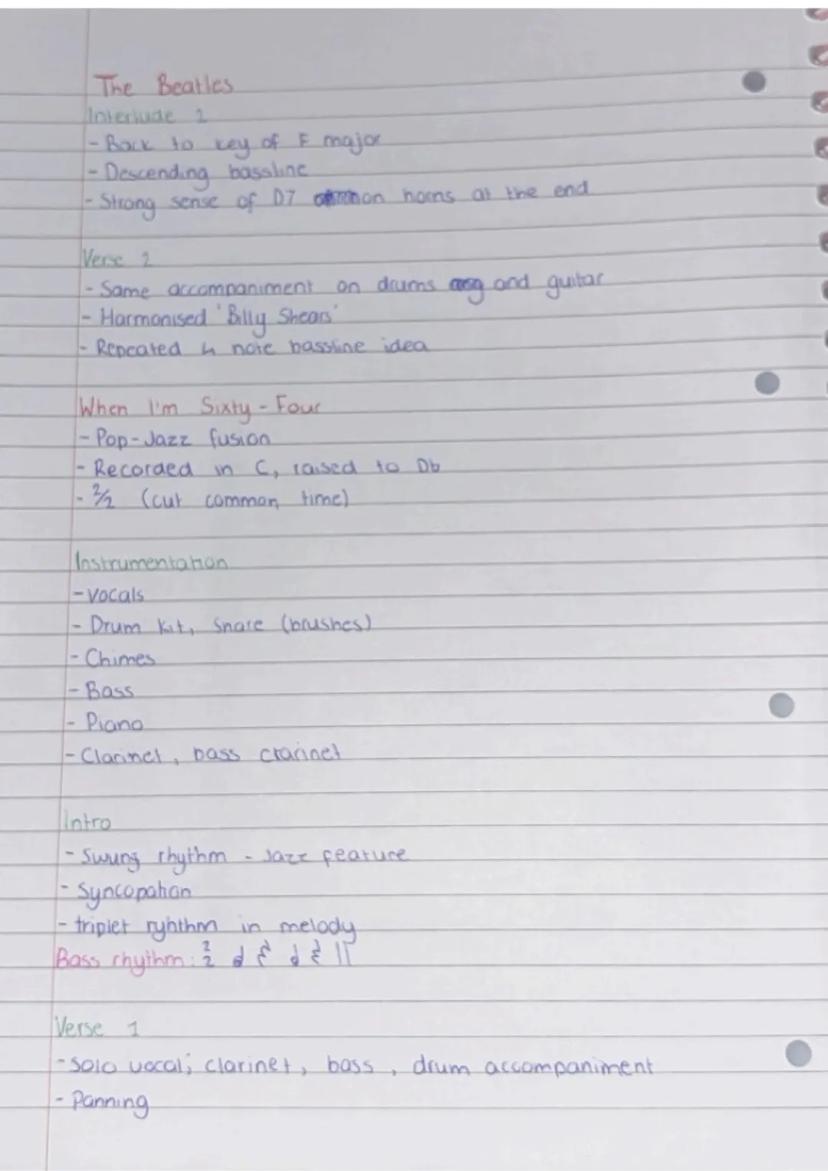 The Beatles
Interlude 2
- Back to key of F major
- Descending bassline
- Strong sense of D7 on horns at the end
Verse 2
- Same accompaniment on drums and guitar
- Harmonised 'Billy Shears'
- Repeated 4 note bassline idea
When I'm Sixty-Four
- Pop-Jazz fusion
- Recorded in C, raised to Db
- 2/2 (cut common time)
Instrumentation
- Vocals
- Drum kit, snare (brushes)
- Chimes
- Bass
- Piano
- Clarinet, bass clarinet
Intro
- Swung rhythm - Jazz feature
- Syncopation
- triplet ryhthm in melody
Bass rhythm: 2/2
Verse 1
- Solo vocal; clarinet, bass, drum accompaniment
- Panning